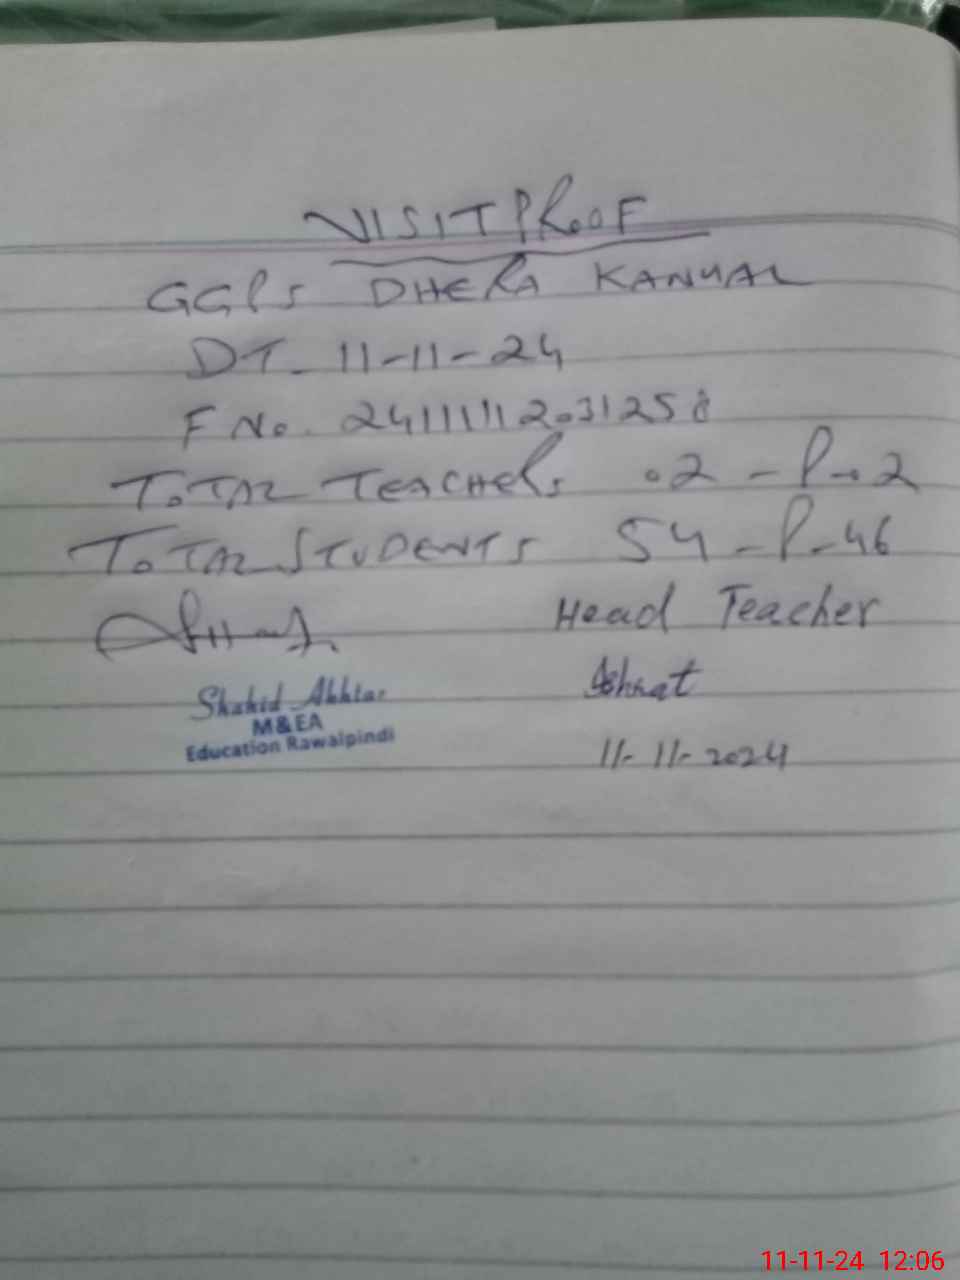 VISIT PROOF
GGPS DHERA KANYAL
DT. 11-11-24
F No. 24111112031258
TOTAL TEACHERS 02 - P-02
TOTAL STUDENTS 54 - P-46
Head Teacher
Shahid Akhtar
M&EA
Education Rawalpindi
11-11-2024
11-11-24 12:06